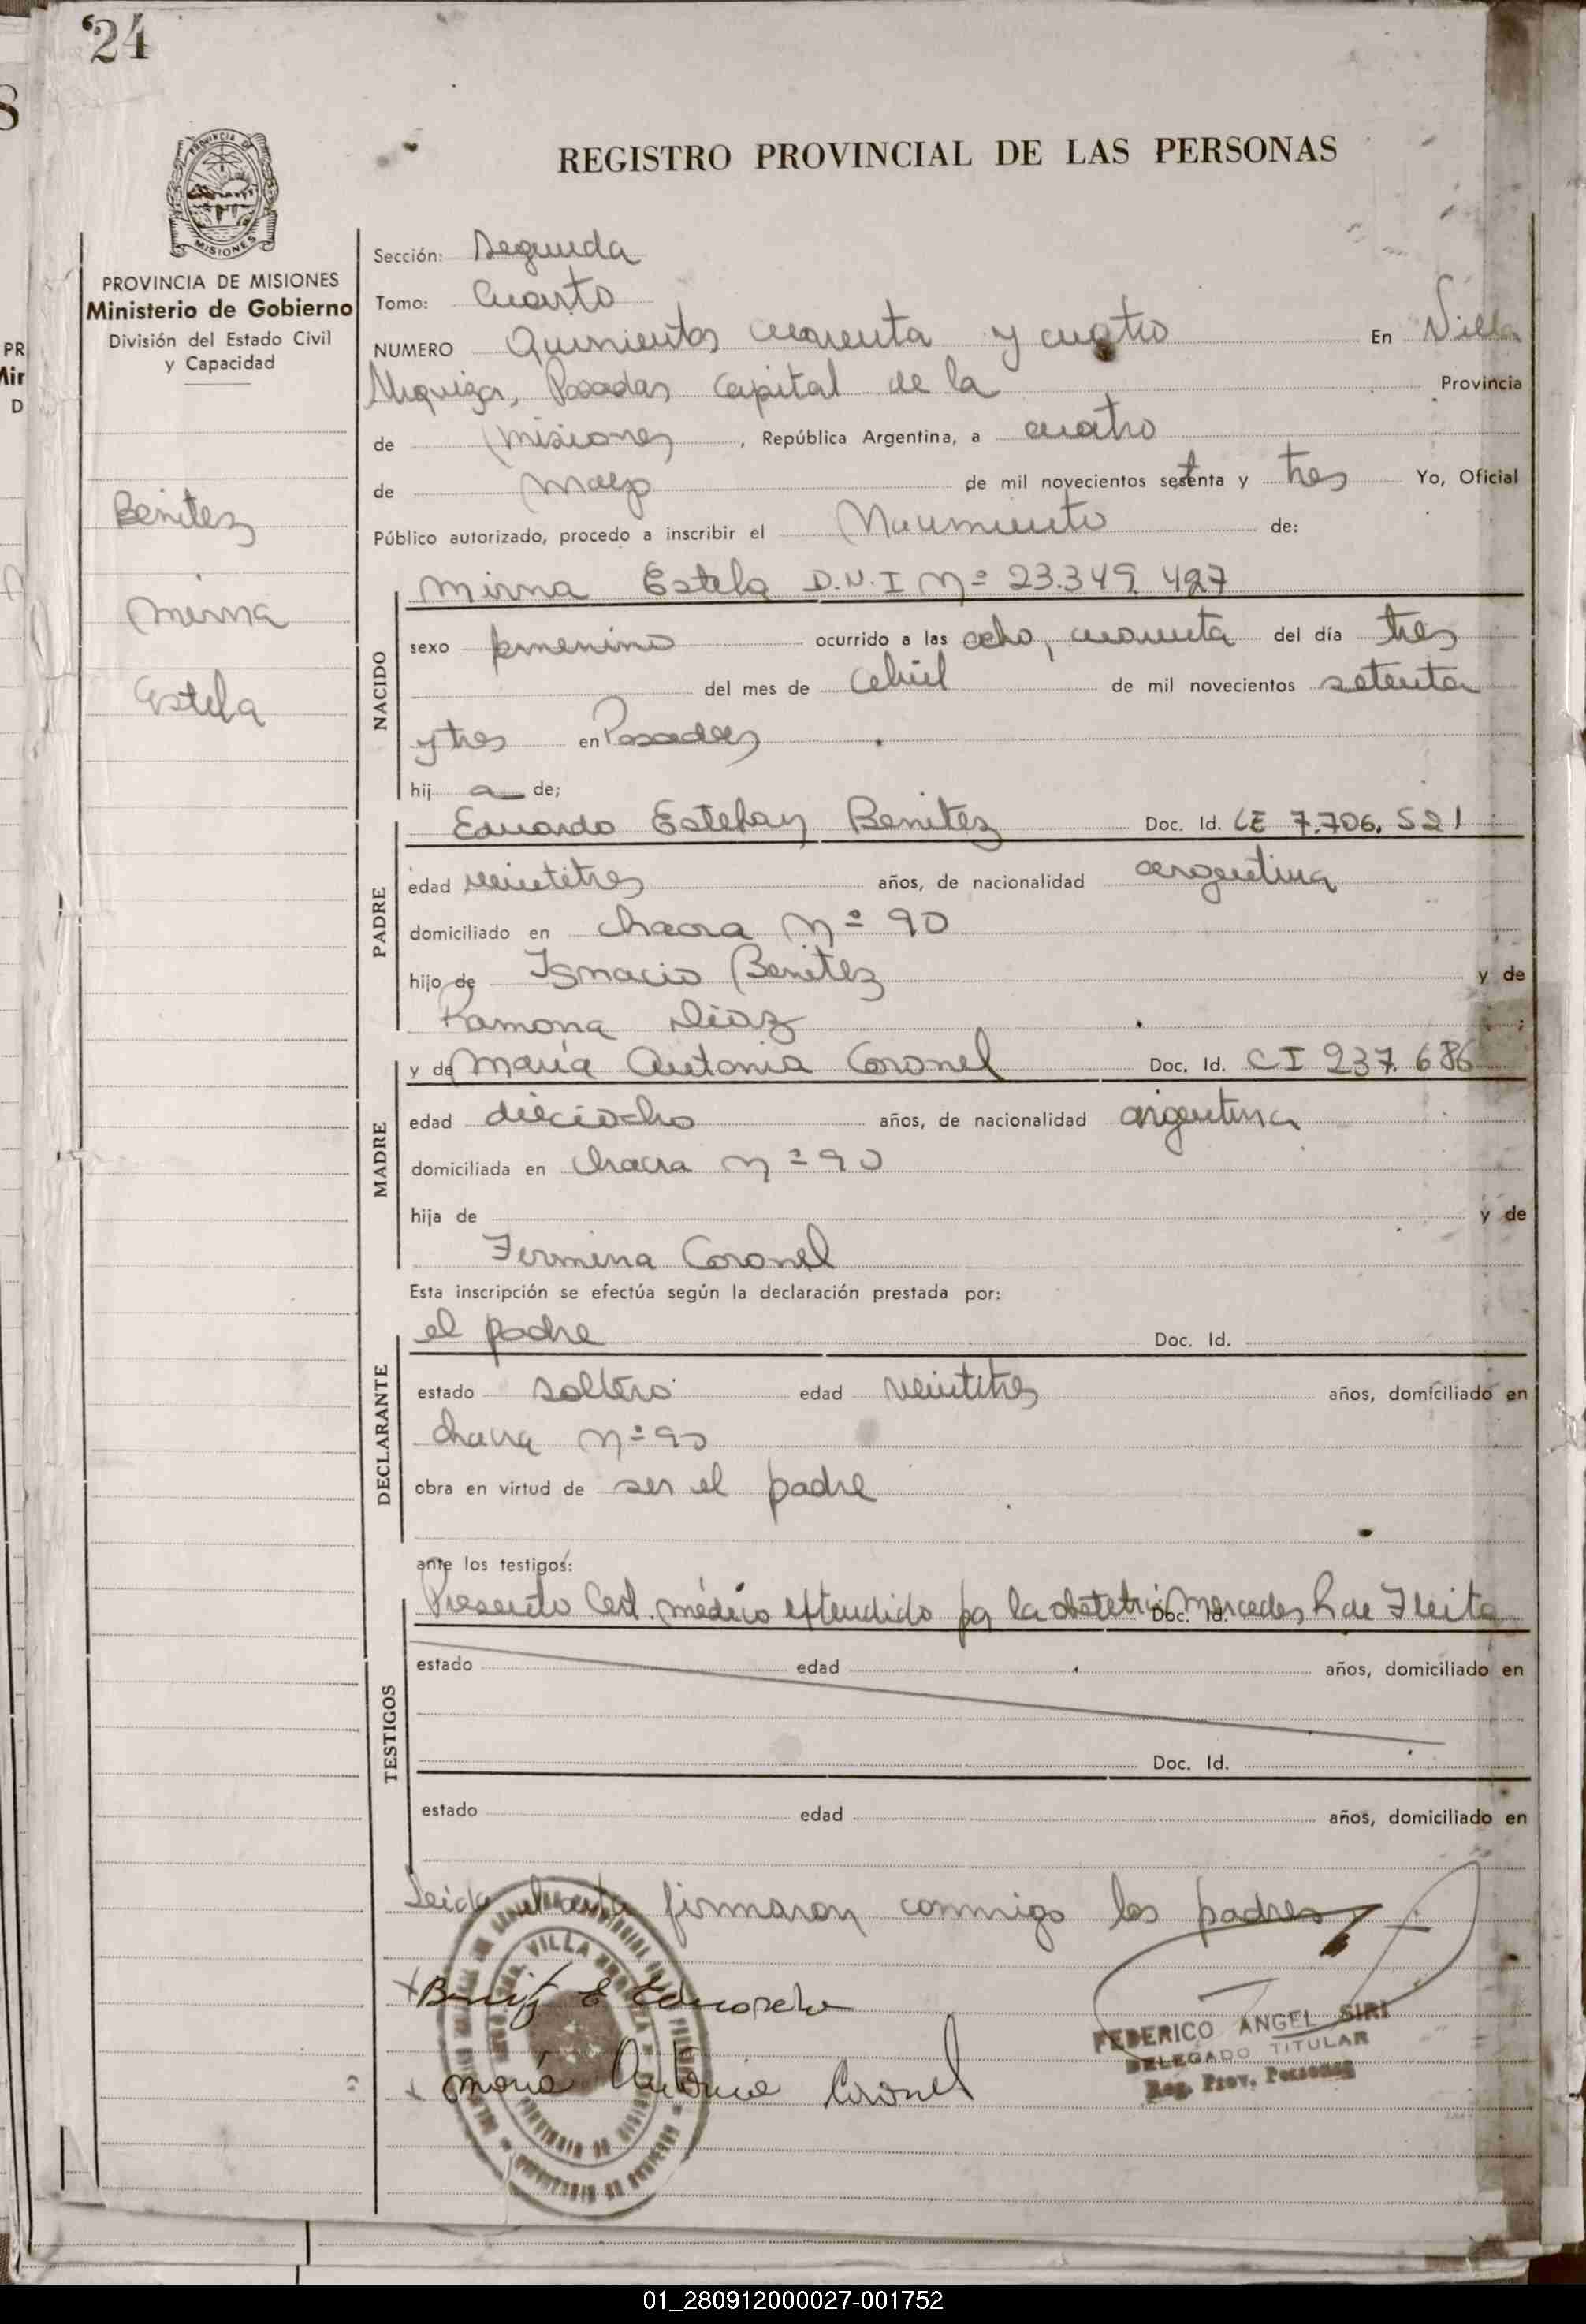 24
REGISTRO PROVINCIAL DE LAS PERSONAS
PROVINCIA DE
MISIONES
PROVINCIA DE MISIONES
Ministerio de Gobierno
División del Estado Civil
y Capacidad
Benitez
Mirna
Estela
Sección: Segunda
Tomo: Cuarto
NUMERO Quinientos cuarenta y cuatro En Villa
Urquiza, Posadas Capital de la Provincia
de Misiones, República Argentina, a cuatro
de Mayo de mil novecientos setenta y tres Yo, Oficial
Público autorizado, procedo a inscribir el Nacimiento de:
NACIDO
Mirna Estela D.N.I Nº 23.349.427
sexo femenino ocurrido a las ocho, cuarenta del día tres
del mes de Abril de mil novecientos setenta
y tres en Posadas
hij a de;
PADRE
Eduardo Esteban Benitez Doc. Id. LE 7.706.521
edad veintitres años, de nacionalidad argentina
domiciliado en chacra Nº 90
hijo de Ignacio Benitez y de
Ramona Diaz ;
MADRE
y de María Antonia Coronel Doc. Id. CI 237.686
edad dieciocho años, de nacionalidad argentina
domiciliada en chacra Nº 90
hija de y de
Fermina Coronel
Esta inscripción se efectúa según la declaración prestada por:
DECLARANTE
el padre Doc. Id.
estado soltero edad veintitres años, domiciliado en
chacra Nº 90
obra en virtud de ser el padre
ante los testigos:
TESTIGOS
Presento Cert. médico extendido por la obstetric Mercedes R de Fleita Doc. Id.
estado edad años, domiciliado en
Doc. Id.
estado edad años, domiciliado en
Leida el acta firmaron conmigo los padres
Benitez E Eduardo
María Antonia Coronel
VILLA URQUIZA
FEDERICO ANGEL SIRI
DELEGADO TITULAR
Reg. Prov. Personas
01_280912000027-001752